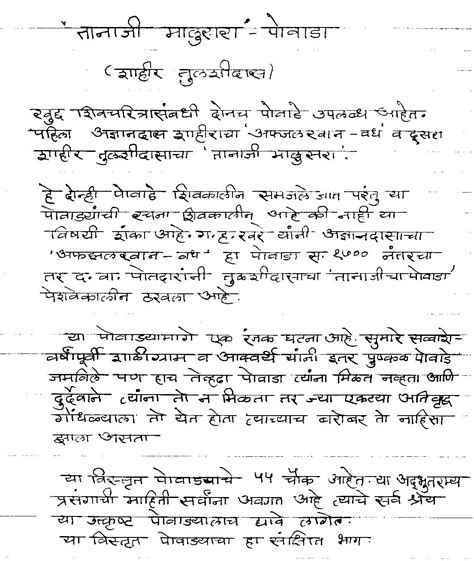 'तानाजी मालुसरा' - पोवाडा
(शाहीर तुळशीदास)
खुद्द शिवचरित्रासंबधी दोनच पोवाडे उपलब्ध आहेत.
पहिला अज्ञानदास शाहीराचा 'अफ्जलखान - वध' व दुसरा
शाहीर तुळशीदासाचा 'तानाजी मालुसरा'.
हे दोन्ही पोवाडे शिवकालीन समजले जात परंतु या
पोवाड्यांची रचना शिवकालीन आहे की नाही या
विषयी शंका आहे. ग. ह. खरे यांनी अज्ञानदासाचा
'अफझलखान - वध' हा पोवाडा स. १७०० नंतरचा
तर द. वा. पोतदारांनी तुळशीदासाचा 'तानाजीचा पोवाडा'
पेशवेकालीन ठरवला आहे.
या पोवाड्यामागे एक रंजक घटना आहे. सुमारे सव्वाशे-
वर्षापूर्वी शाळीग्राम व आक्वर्थ यांनी इतर पुष्कळ पोवाडे
जमविले पण हाच तेव्हढा पोवाडा त्यांना मिळत नव्हता आणि
दुर्दैवाने त्यांना तो न मिळता तर ज्या एकट्या अतिवृद्ध
गोंधळ्याला तो येत होता त्याच्याच बरोबर तो नाहिसा
झाला असता
या विस्तृत पोवाड्याचे ५५ चौक आहेत. या अद्भुतरम्य
प्रसंगाची माहिती सर्वांना अवगत आहे त्याचे सर्व श्रेय
या उत्कृष्ट पोवाड्यालाच द्यावे लागेल.
या विस्तृत पोवाड्याचा हा संक्षिप्त भाग.